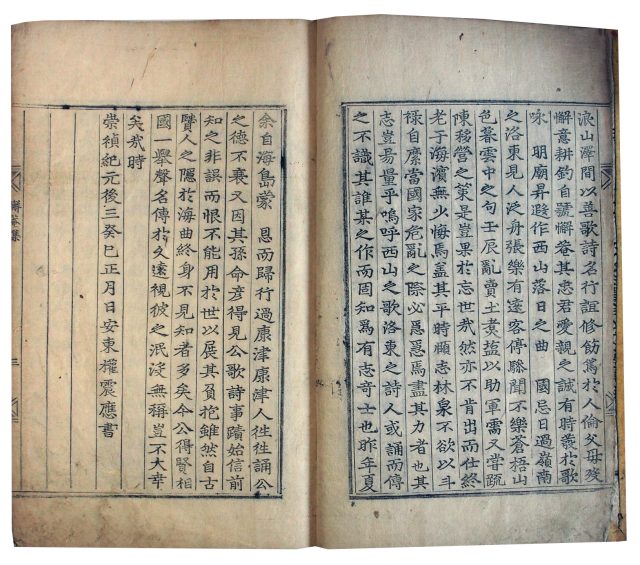 浪山澤間以善歌詩名行誼修飭篤於人倫父母歿
懈意耕釣自號懈菴其忠君愛親之誠有時發於歌
咏 明廟昇遐作西山落日之曲 國忌日過嶺南
之洛東見人泛舟張樂有遠客停驂聞不樂蒼梧山
色暮雲中之句壬辰亂賣土煑塩以助軍需又嘗疏
陳移營之策是豈果於忘世哉然亦不肯出而仕終
老于海濱無少悔焉盖其平時願志林泉不欲以斗
祿自縻當國家危亂之際必焉盡其力者也其
志豈易量乎嗚呼西山之歌洛東之詩人或誦而傳
之不識其誰某之作而固知爲有志奇士也昨年夏
余自海島蒙 恩而歸行過康津康津人徃徃誦公
之德不衰又因其孫命彦得見公歌詩事蹟始信前
知之非誤而恨不能用於世以展其負抱雖然自古
賢人之隱於海曲終身不見知者多矣今公得賢相
國一擧聲名傳於久遠視彼之泯沒無稱豈不大幸
矣哉時
崇禎紀元後三癸巳正月日安東權震應書
懈菴集
三